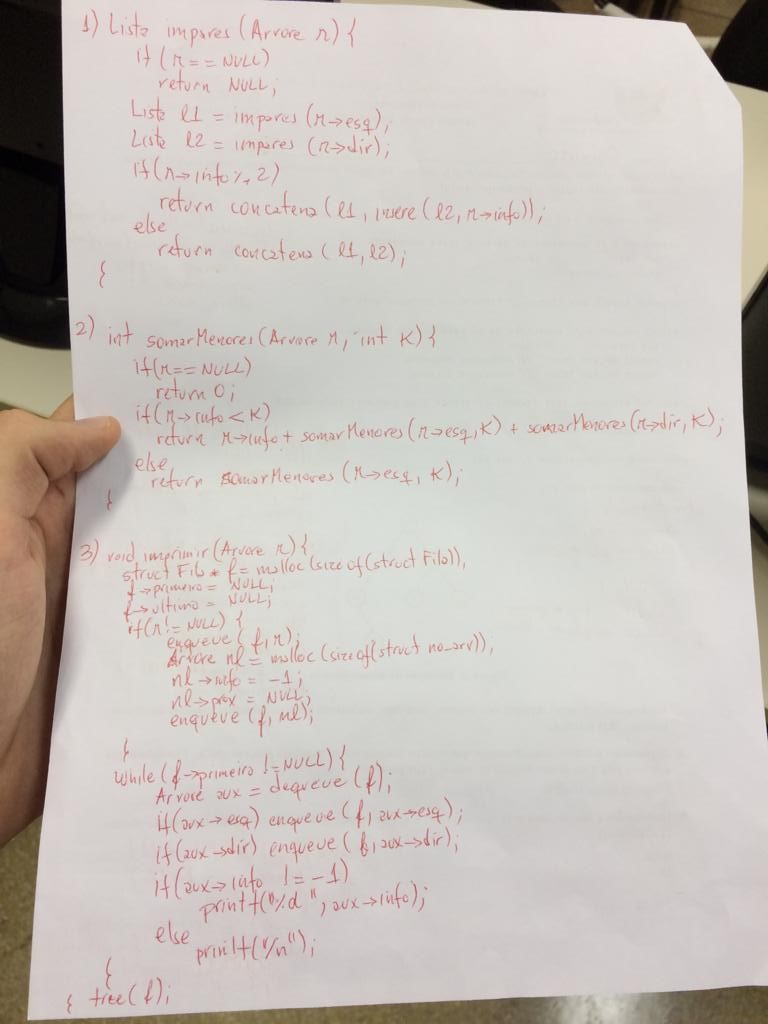 1) Lista impares (Arvore r) {
if (r == NULL)
return NULL;
Lista l1 = impares (r→esq);
Lista l2 = impares (r→dir);
if (r→info % 2)
return concatena (l1, insere (l2, r→info));
else
return concatena (l1, l2);
}
2) int somarMenores (Arvore r, int K) {
if (r == NULL)
return 0;
if (r→info < K)
return r→info + somarMenores (r→esq, K) + somarMenores (r→dir, K);
else
return somarMenores (r→esq, K);
}
3) void imprimir (Arvore r) {
struct Fila * f = malloc (size of (struct Fila));
f→primeiro = NULL;
f→ultimo = NULL;
if (r != NULL) {
enqueue (f, r);
Arvore nl = malloc (size of (struct no_arv));
nl→info = -1;
nl→prox = NULL;
enqueue (f, nl);
}
while (f→primeiro != NULL) {
Arvore aux = dequeue (f);
if (aux→esq) enqueue (f, aux→esq);
if (aux→dir) enqueue (f, aux→dir);
if (aux→info != -1)
printf ("%d ", aux→info);
else
printf ("/n");
}
} free (f);